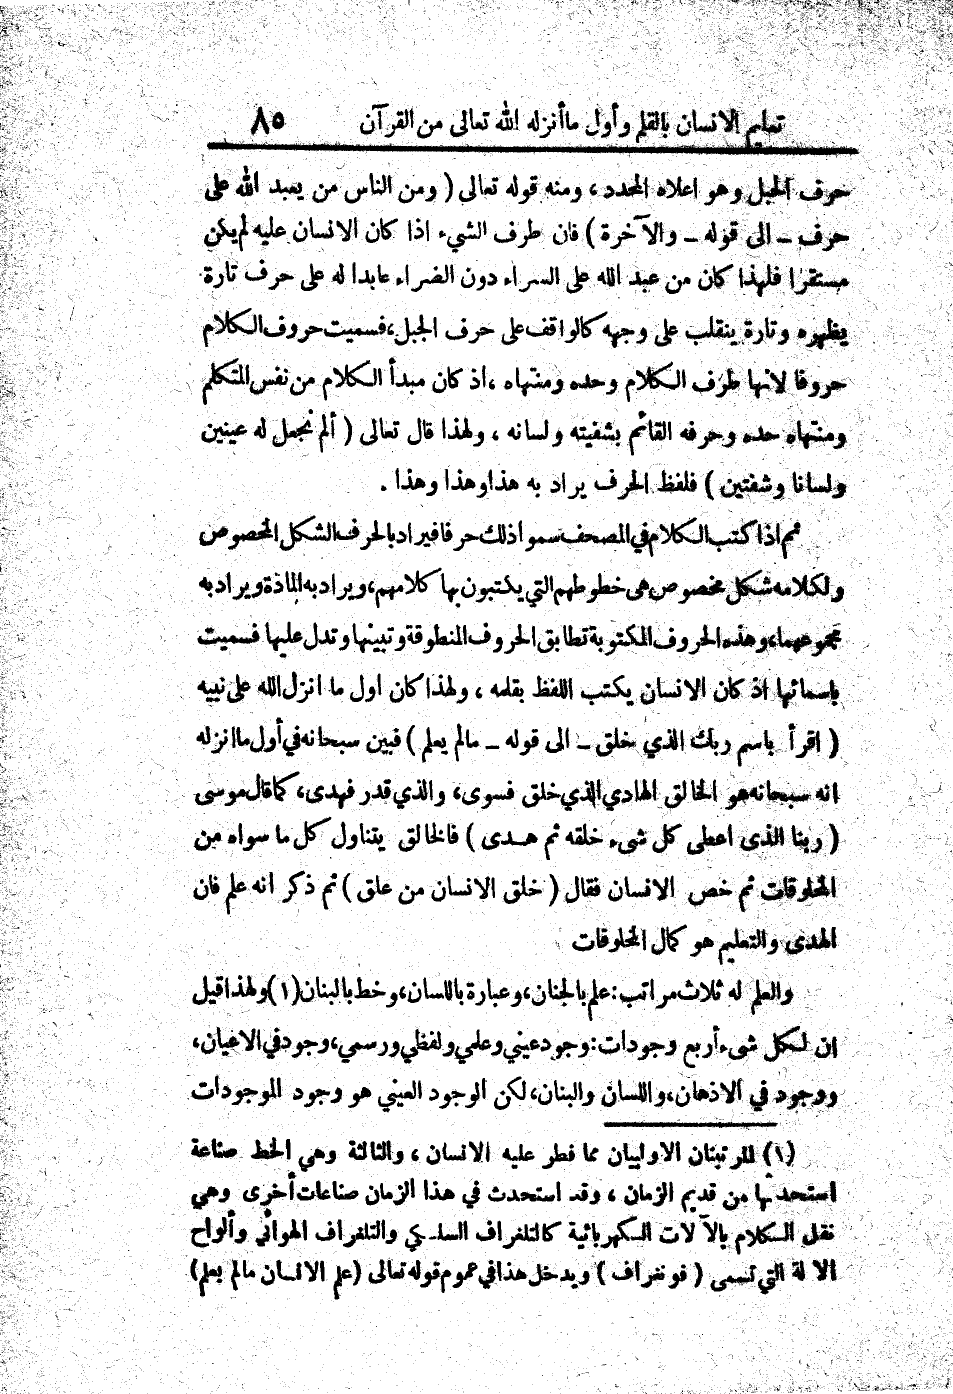 تعليم الانسان بالقلم وأول ما أنزله الله تعالى من القرآن ٨٥
حرف الجبل وهو اعلاه المحدد ، ومنه قوله تعالى ( ومن الناس من يعبد الله على
حرف ــ الى قوله ــ والآخرة ) فان طرف الشيء اذا كان الانسان عليه لم يكن
مستقرا فلهذا كان من عبد الله على السراء دون الضراء عابدا له على حرف تارة
يظهره وتارة ينقلب على وجهه كالواقف على حرف الجبل ، فسميت حروف الكلام
حروفا لانها طرف الكلام وحده ومنتهاه ، اذ كان مبدأ الكلام من نفس المتكلم
ومنتهاه حده وحرفه القائم بشفيته ولسانه ، ولهذا قال تعالى ( ألم نجعل له عينين
ولسانا وشفتين ) فلفظ الحرف يراد به هذا وهذا وهذا .
ثم اذا كتب الكلام في المصحف سموا ذلك حرفا فيراد بالحرف الشكل المخصوص
ولكلامه شكل مخصوص هى خطوطهم التي يكتبون بها كلامهم ، ويراد به المادة ويراد به
مجموعهما ، وهذه الحروف المكتوبة تطابق الحروف المنطوقة وتبينها وتدل عليها فسميت
باسمائها اذ كان الانسان يكتب اللفظ بقلمه ، ولهذا كان اول ما انزل الله على نبيه
( اقرأ باسم ربك الذي خلق ــ الى قوله ــ مالم يعلم ) فبين سبحانه في أول ما انزله
انه سبحانه هو الخالق الهادي الذي خلق فسوى ، والذي قدر فهدى ، كما قال موسى
( ربنا الذى اعطى كل شىء خلقه ثم هـدى ) فالخالق يتناول كل ما سواه من
المخلوقات ثم خص الانسان فقال ( خلق الانسان من علق ) ثم ذكر انه علم فان
الهدى والتعليم هو كمال المخلوقات
والعلم له ثلاث مراتب : علم بالجنان ، وعبارة باللسان ، وخط بالبنان (١) ولهذا قيل
ان لكل شىء أربع وجودات : وجود عيني وعلمي ولفظي ورسمي ، وجود في الاعيان ،
ووجود في الاذهان ، واللسان والبنان ، لكن الوجود العيني هو وجود الموجودات
(١) المرتبتان الاوليان مما فطر عليه الانسان ، والثالثة وهي الخط صناعة
استحدثها من قديم الزمان ، وقد استحدث في هذا الزمان صناعات أخرى وهي
نقل الكلام بالآلات الكهربائية كالتلغراف السلكي والتلغراف الهوائي وألواح
الالة التي تسمى ( فونغراف ) ويدخل هذا في عموم قوله تعالى ( علم الانسان مالم يعلم )